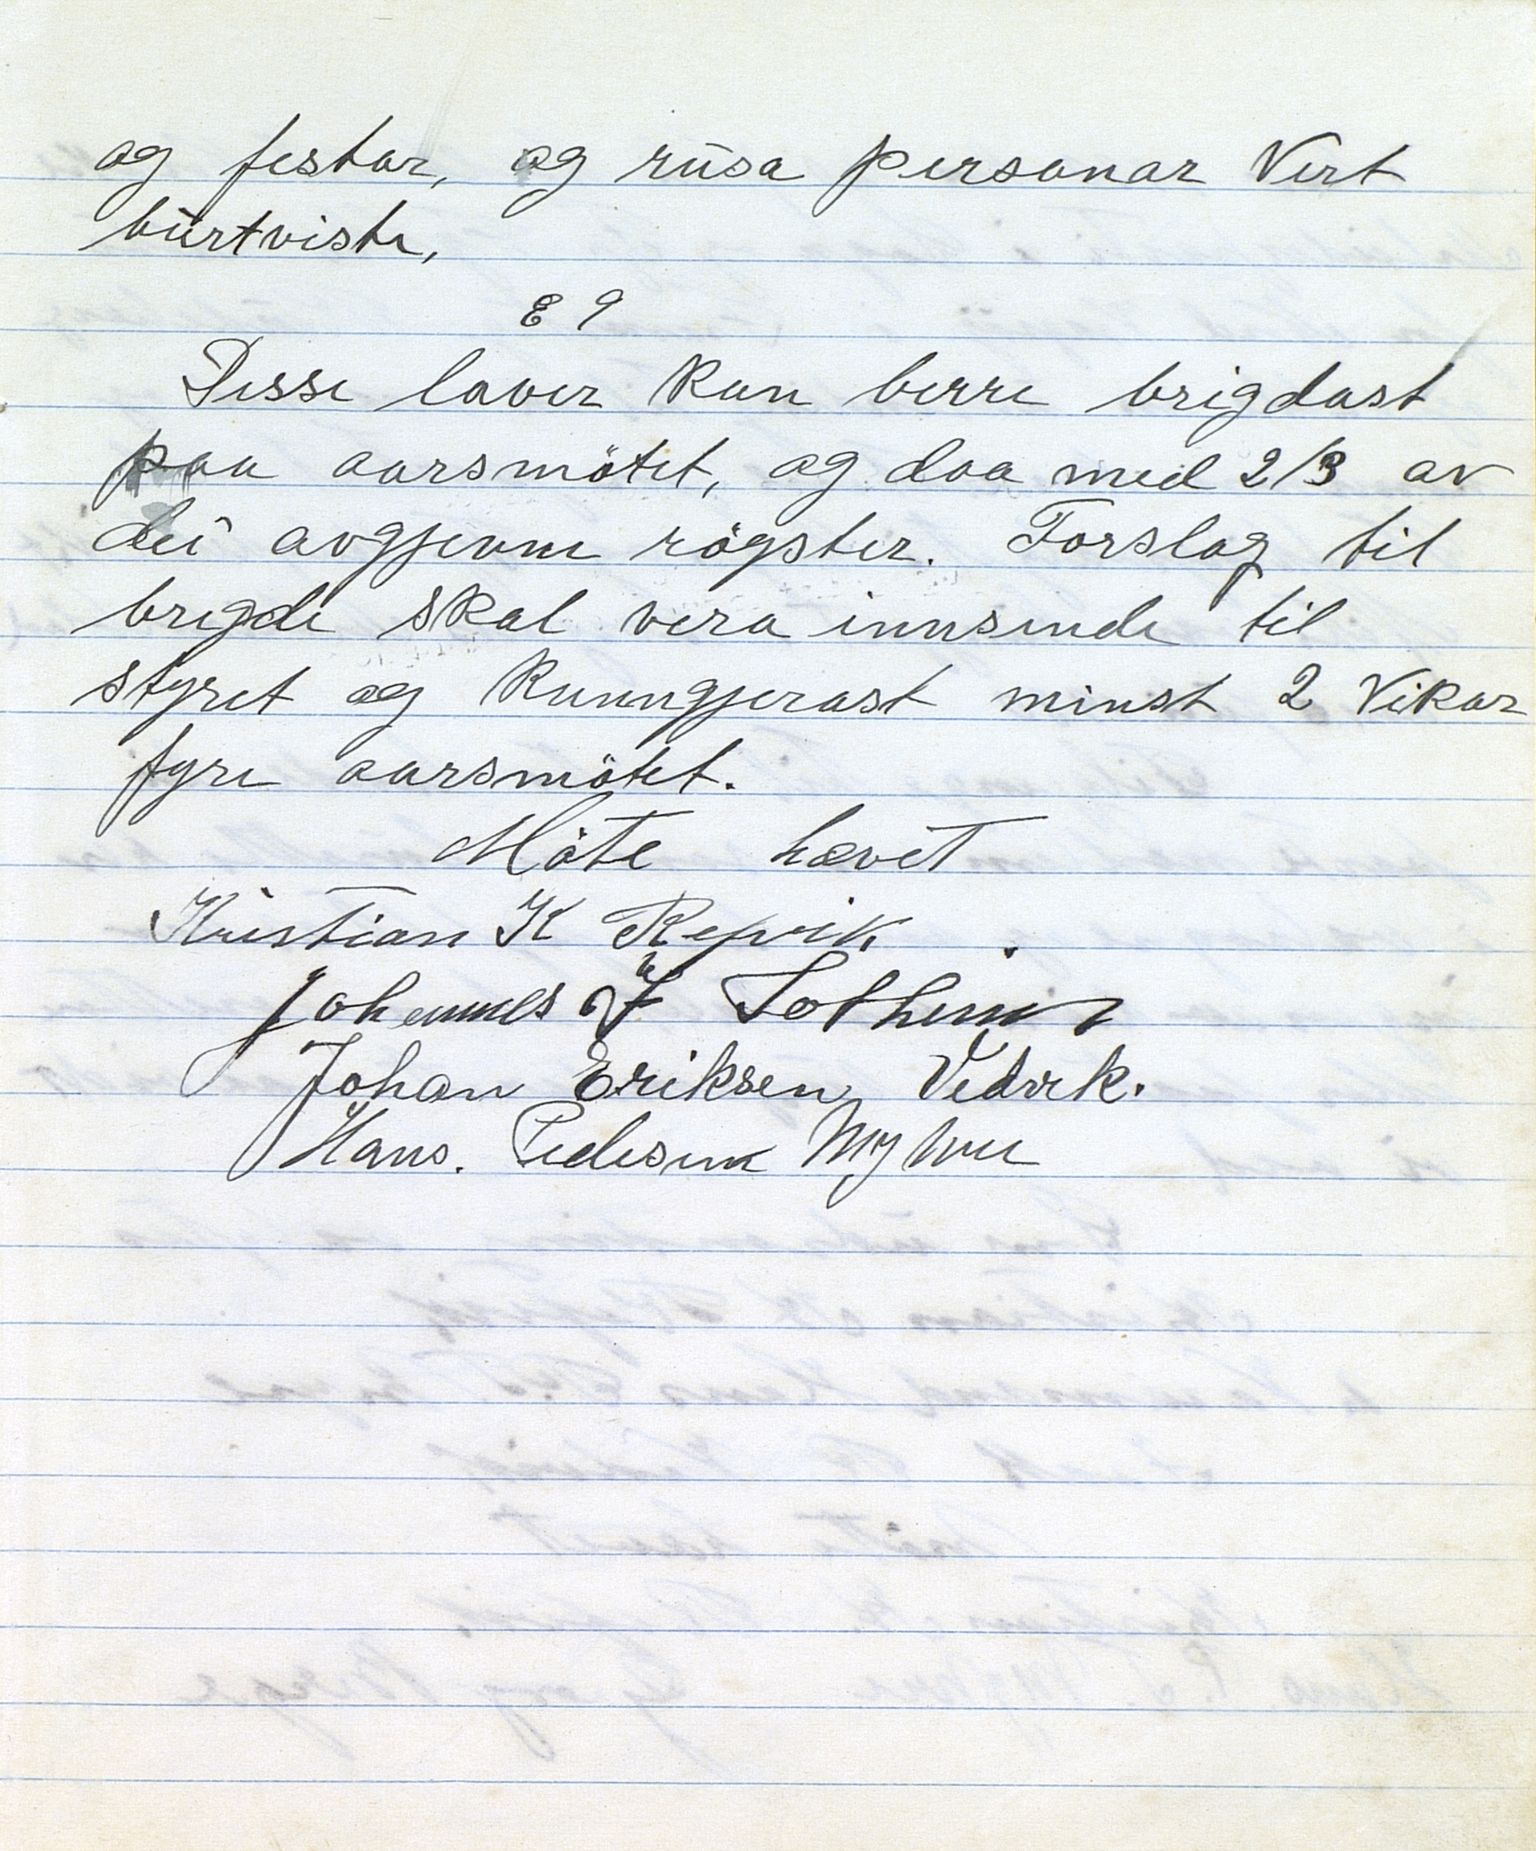 og festar, og rusa personar Vert
burtviste,
§ 9
Desse lover kan berre brigdast
paa aarsmötet, og daa med 2/3 av
dei avgjevne rögster. Forslag til
brigde skal vera innsende til
styret og kunngjerast minst 2 Vikar
fyre aarsmötet.
Möte hævet
Kristian K Repvik
Johannes J
Johan Eriksen Vedvik.
Hans. Pedersen Myhre